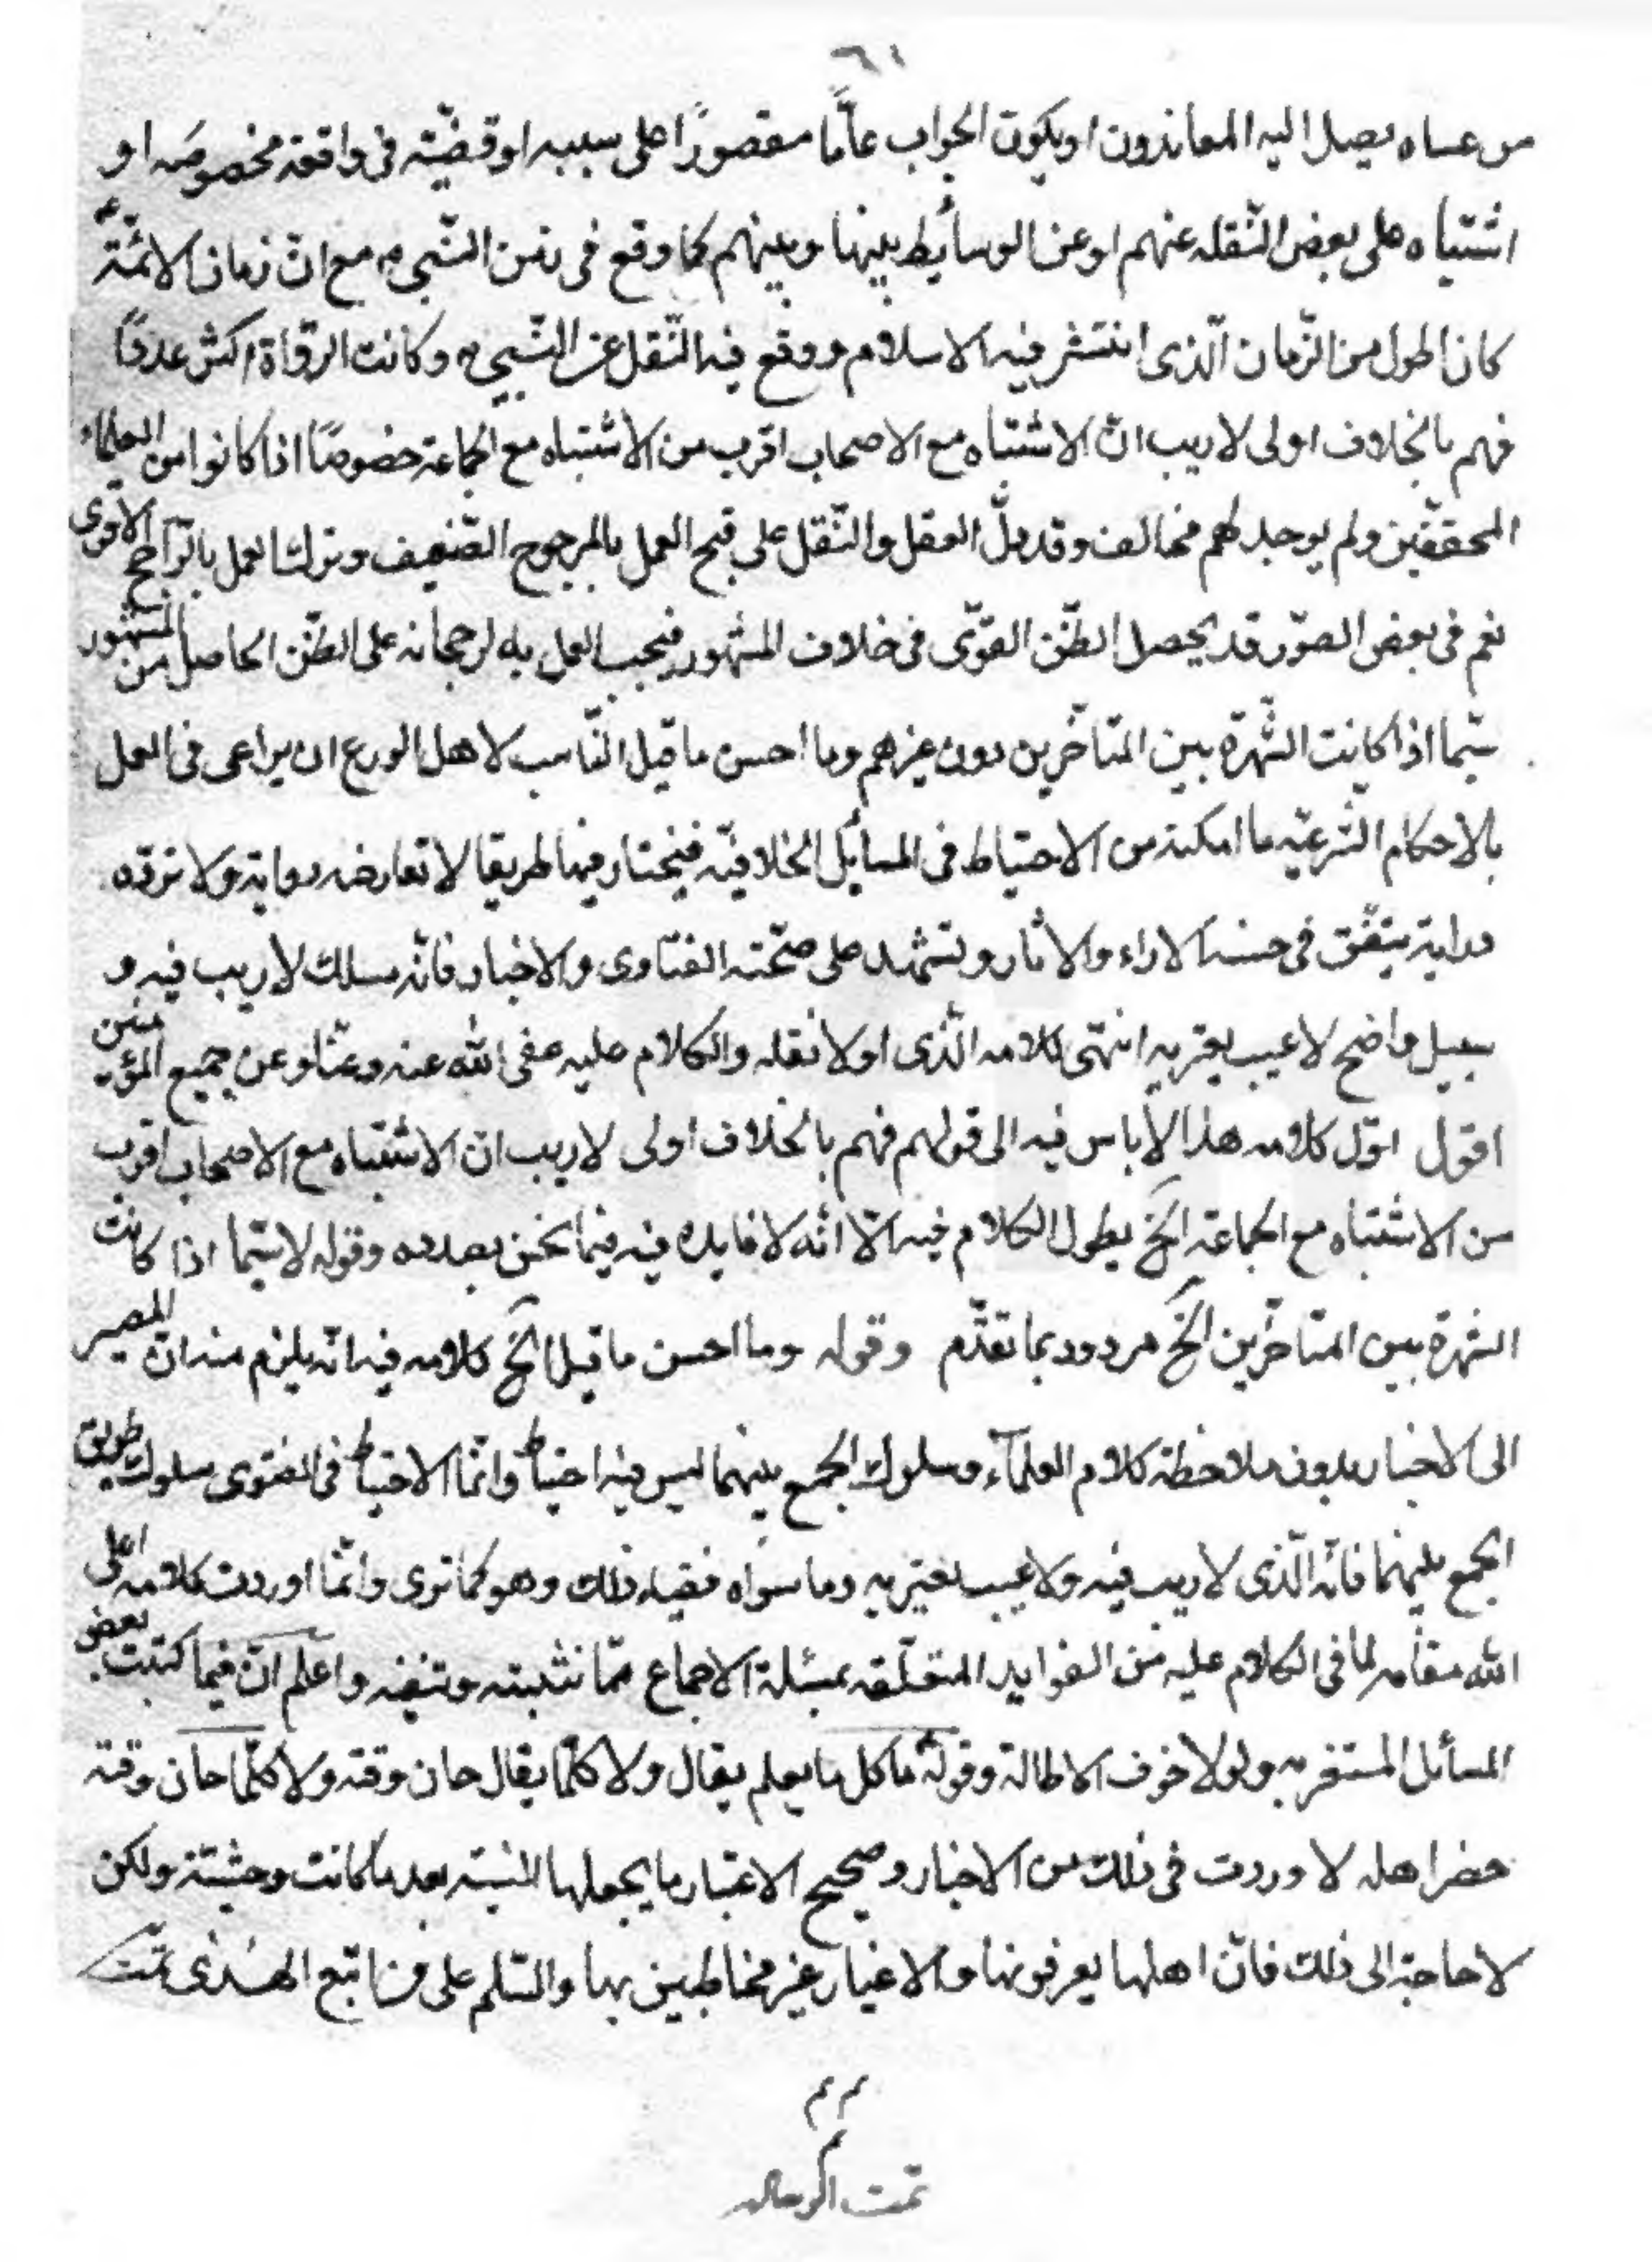 ٦١
من عساه يصل اليه المعاندون او يكون الجواب عامًّا مقصورًا على سببه او قضيّته فى واقعة مخصوصه او
اشتباه على بعض النّقله عنهم او عن الوسأيط بينها وبينهم كما وقع فى زمن النّبى ص مع انّ زمان الائمّة ع
كان اطول من الزّمان الّذى انتشر فيه الاسلام ووقع فيه النّقل عن النّبى ص وكانت الرّواة اكثر عددًا
فهم بالخلاف اولى لاريب انّ الاشتباه مع الاصحاب اقرب من الاشتباه مع الجماعة خصوصًا اذا كانوا من العلماء
المحققّين ولم يوجد لهم مخالف وقد دلّ العقل والنّقل على قبح العمل بالمرجوح الضّعيف وترك العمل بالرّاجح الاقوى
نعم فى بعض الصوّر قد يحصل الظّن القوّى فى خلاف المشهور فيجب العمل به لرجحانه على الظّن الحاصل من المشهور
سيّما اذا كانت الشّهرة بين المتأخّرين دون غيرهم وما احسن ما قيل النّاسب لاهل الورع ان يراعى فى العمل
بالاحكام الشّرعيّه ما امكنه من الاحتياط فى المسأيل الخلافيّه فيختار فيها طريقا لا تعارضه رواية ولا تردّه
دراية يتفّق فى حسنه الاراء والاثار وتشهد على صحّته الفتاوى والاخبار فانّه مسلك لاريب فيه و
سبيل واضح لا عيب يعتريه انتهى كلامه الّذى اولا نقله والكلام عليه عفى الله عنه وعنّا وعن جميع المؤمنين
اقول اوّل كلامه هذا لا باس فيه الى قولهم فهم بالخلاف اولى لاريب انّ الاشتباه مع الاصحاب اقرب
من الاشتباه مع الجماعة الخ يطول الكلام فيه الّا انّه لا فايده فيه فيما نحن بصدده وقوله لاسيّما اذا كانت
الشّهرة بين المتأخّرين الخ مردود بما تقدّم وقوله وما احسن ما قيل الخ كلامه فيه انّه يلزم منه انّ المصير
الى الاخبار بدون ملاحظة كلام العلمآء وسلوك الجمع بينهما ليس فيه احتياط وانّما الاحتياط فى الفتوى سلوك طريق
الجمع بينهما فانّه الّذى لاريب فيه ولا عيب يعتريه وما سواه فضد ذلك وهو كما ترى وانّما اوردت كلامه اعلى
الله مقامه لما فى الكلام عليه من الفوايد المتعلّقه بمسئلة الاجماع ممّا نثبته وننفيه واعلم انّ فيما كتبت بعض
المسأئل المستغربه ولولا خوف الاطالة وقوله ع ما كل ما يعلم يقال ولا كلّما يقال حان وقته ولا كلّما حان وقته
حضر اهله لاوردت فى ذلك من الاخبار وصحيح الاعتبار ما يجعلها انيسته بعد ما كانت وحشيّته ولكن
لا حاجة الى ذلك فانّ اهلها يعرفونها والاغيار غير مخاطبين بها والسّلم على من اتّبع الهُدٰى تمّت
م م م
تمت الرساله